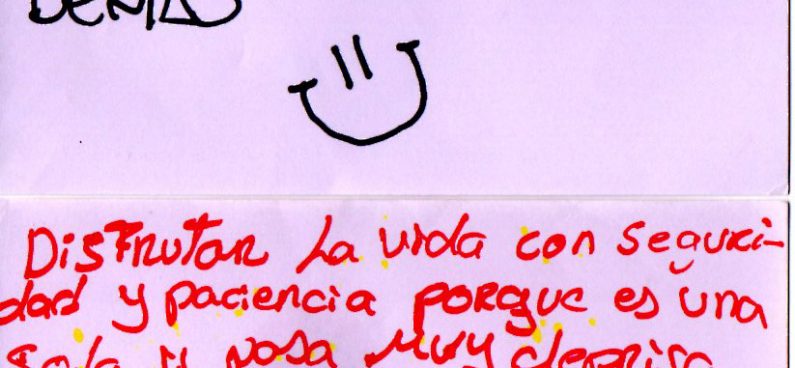 Disfrutar la vida con seguri-
dad y paciencia porque es una
sola y pasa muy deprisa